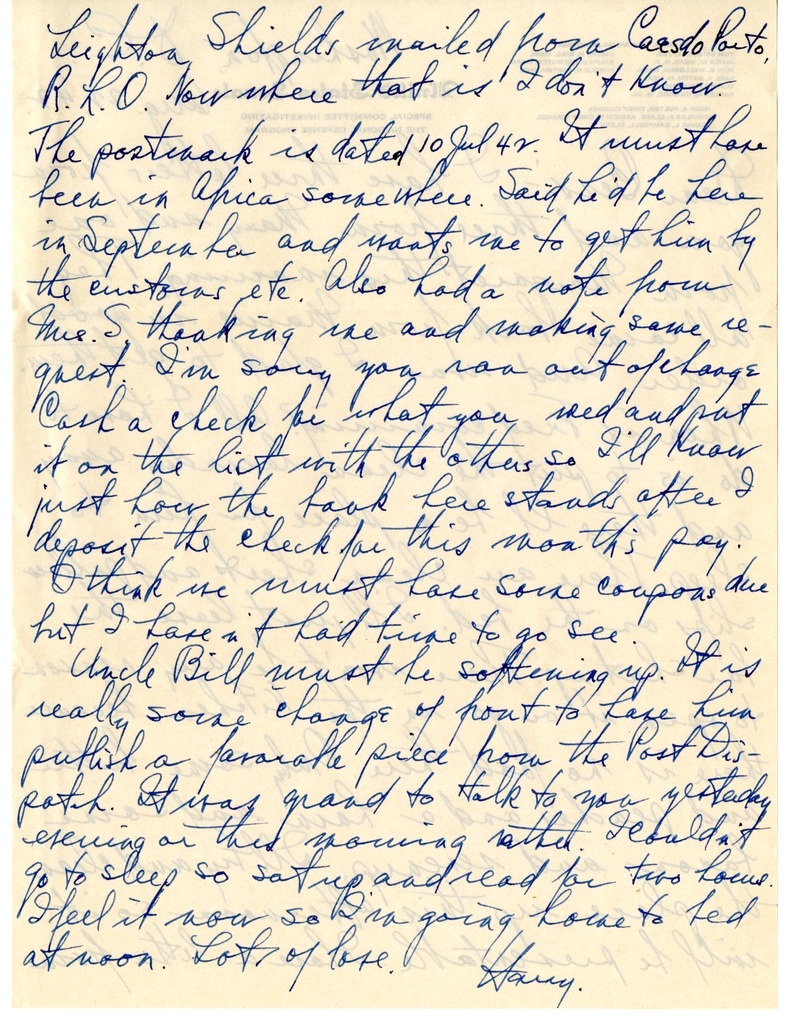 Leighton Shields mailed from Caesdo Porto,
R.L.O. Now where that is I don't know.
The postmark is dated 10 Jul 42. It must have
been in Africa somewhere. Said he'd be here
in September and wants me to get him by
the customs, etc. Also had a note from
Mrs. S, thanking me and making same re-
quest. I'm sorry you ran out of change
Cash a check for what you need and put
it on the list with the others so I'll know
just how the bank here stands after I
deposit the check for this month's pay.
I think we must have some coupons due
but I haven't had time to go see.
Uncle Bill must be softening up. It is
really some change of front to have him
publish a favorable piece from the Post Dis-
patch. It was grand to talk to you yesterday
evening or this morning rather. I couldn't
go to sleep so sat up and read for two hours.
I feel it now so I'm going home to bed
at noon. Lots of love.
Harry.